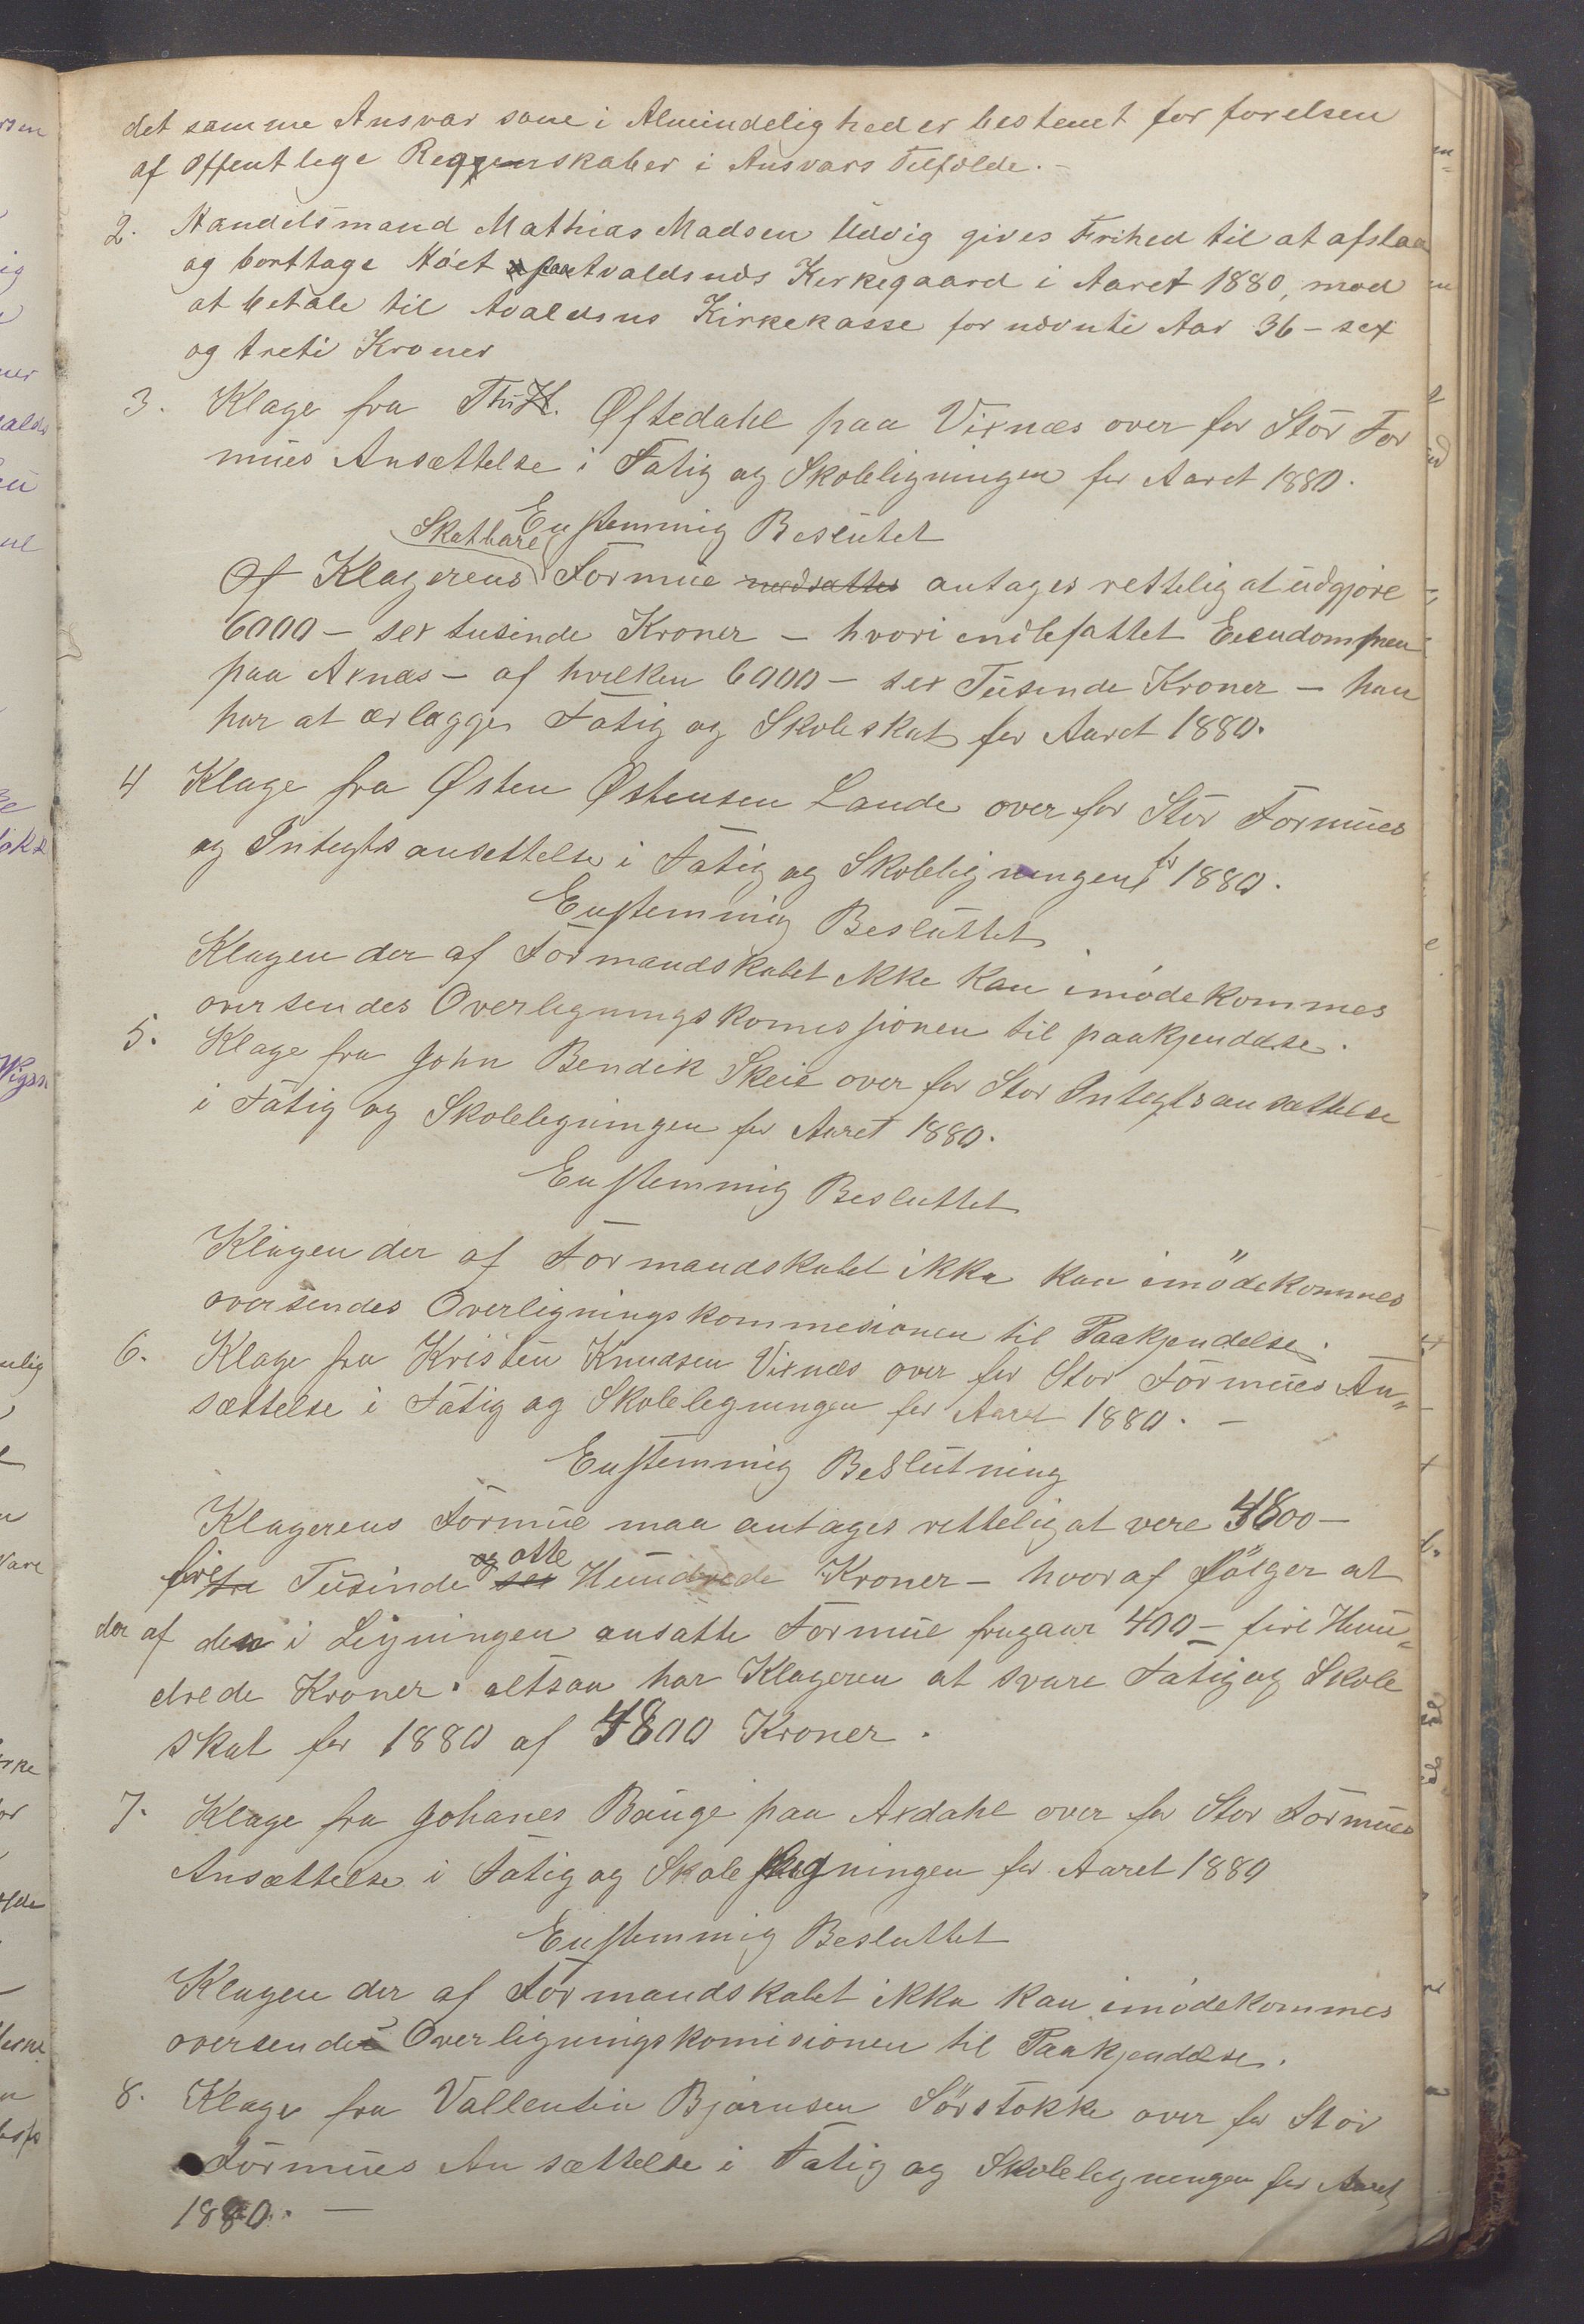 det samme Ansvar som i Almindelighed er bestemt for førelsen
af Offentlege Reggenskaber i Ansvars Tilfælde. -
2. Handelsmand Mathias Madsen Udvig gives Frihed til at afslaa
og borttage Höet paa Avaldsnæs Kerkegaard i Aaret 1880, mod
at betale til Avaldsns Kirkekasse for nævnte Aar 36 - sex
og treti Kroner
3. Klage fra Øftedahl paa Vixnæs over for Stor For
mues Ansættelse i Fatig og Skoleligningen for Aaret 1880.
Enstemmig Beslutet
Skatbare
Af Klagerens Formue nedsættes antages rettelig at udgjøre
6000 - sex tusinde Kroner - hvori indbefattet Eiendommen
paa Aknæs - af hvilken 6000 - sex Tusende Kroner - han
har at ærlægge Fatig og Skoleskat for Aaret 1880.
4 Klage fra Østen Østensen Lande over for Stor Formues
og Integts ansettelse i Fatig og Skoleligningen for 1880.
Enstemmig Besluttet
Klagen der af Formandskabet ikke kan imödekommes
oversendes Overlegningskomissionen til paakjendelse.
5. Klage fra John Bendik Skeie over for Stor Integtsansættelse
i Fatig og Skolelegningen for Aaret 1880.
Enstemmig Besluttet
Klagen der af Formandskabet ikke kan imödekommes
oversendes Overligningskommesionen til Paakjendelse.
6. Klage fra Kristen Knudsen Vixnæs over for Stor Formues An„
sættelse i Fatig og Skolelegningen for Aaret 1880. -
Enstemmig Beslutning
Klagerens Formue maa antages rettelig at vere 4800 -
og otte
fire Tusinde sex Hundrede Kroner - hvoraf fölger at
der af den i Ligningen ansatte Formue fragaar 400 - fire Hun„
drede Kroner. altsaa har Klageren at svare Fatig og Skole
skat for 1880 af 4800 Kroner.
7. Klage fra Johanes Bauge paa Axdahl over for Stor Formues
Ansættelse i Fatig og Skolelegningen for Aaret 1880
Enstemmig Besluttet
Klagen der af Formandskabet ikke kan imödekommes
oversendes Overligningskomisionen til Paakjendelse.
8. Klage fra Vallentin Bjørnsen Sörstokke over for Stor
Formues Ansættelse i Fatig og Skolelegningen for Aaret
1880. -